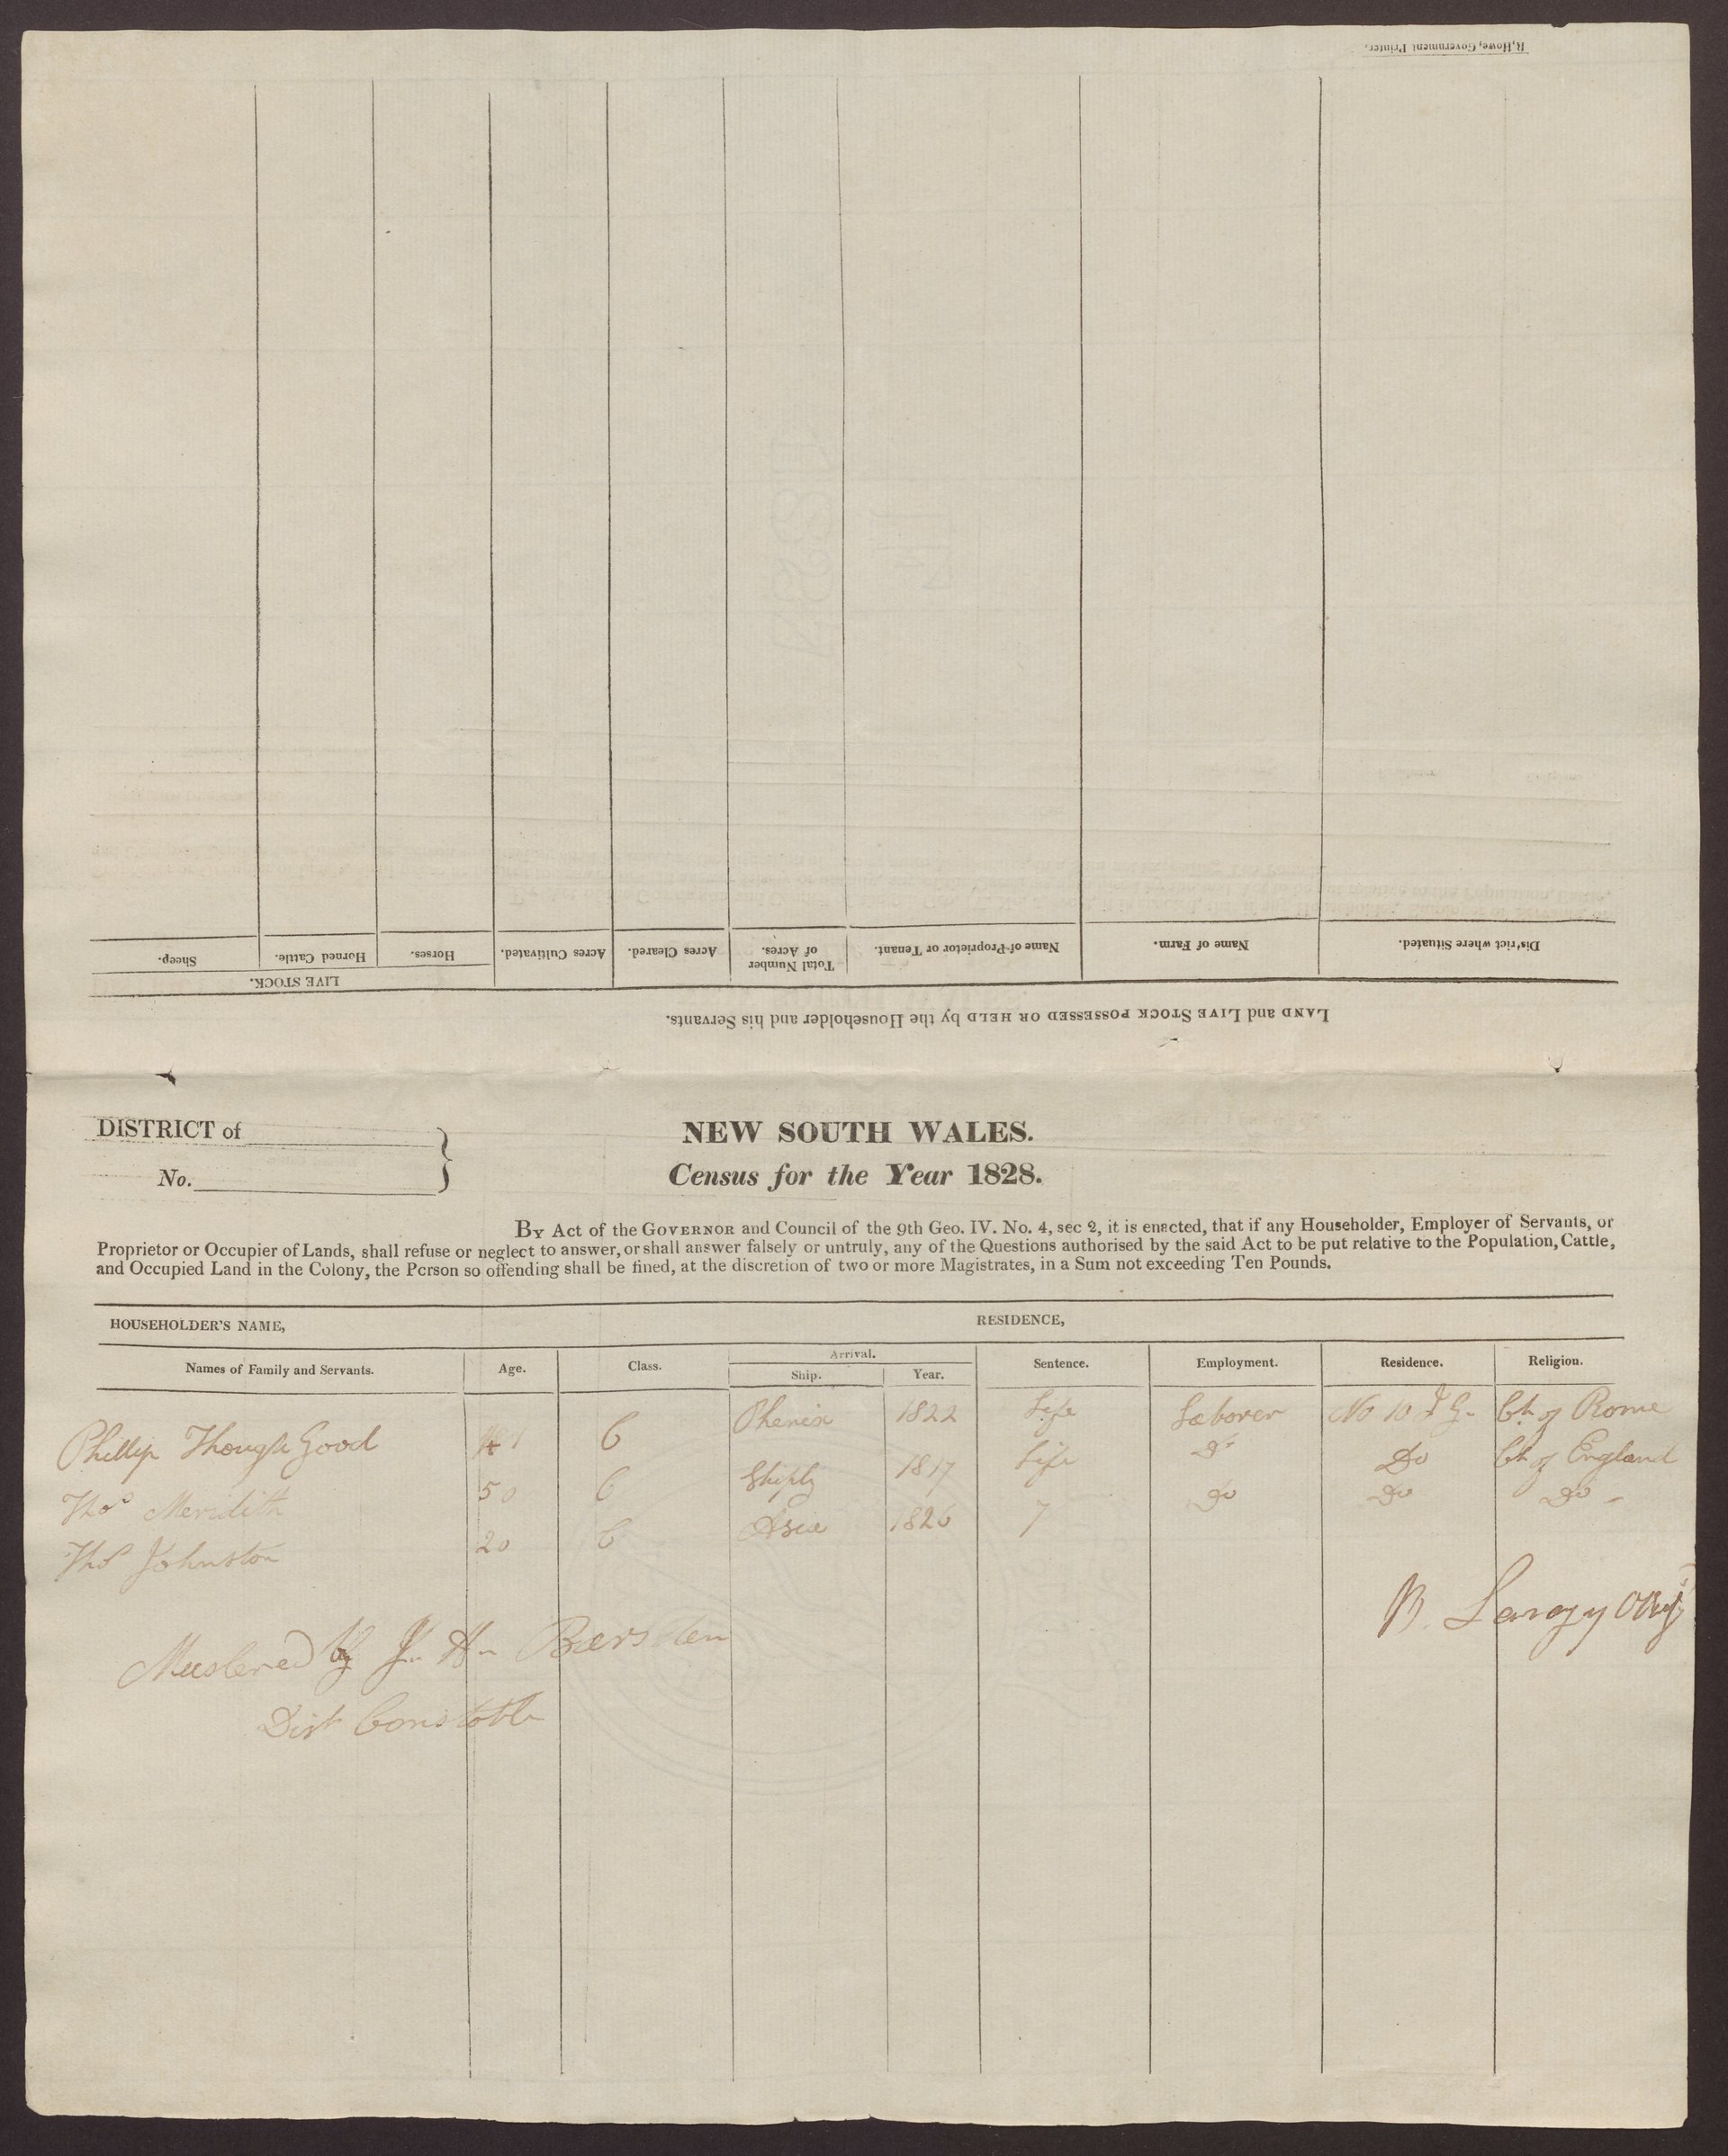 R, Howe, Government Printer.
LAND and LIVE STOCK POSSESSED OR HELD by the Householder and his Servants.
District where Situated. Name of Farm. Name of Proprietor or Tenant. Total Number of Acres. Acres Cleared. Acres Cultivated. LIVE STOCK. Horses. Horned Cattle. Sheep.
DISTRICT of
No.
NEW SOUTH WALES.
Census for the Year 1828.
BY Act of the GOVERNOR and Council of the 9th Geo. IV. No. 4, sec 2, it is enacted, that if any Householder, Employer of Servants, or
Proprietor or Occupier of Lands, shall refuse or neglect to answer, or shall answer falsely or untruly, any of the Questions authorised by the said Act to be put relative to the Population, Cattle,
and Occupied Land in the Colony, the Person so offending shall be fined, at the discretion of two or more Magistrates, in a Sum not exceeding Ten Pounds.
HOUSEHOLDER'S NAME, RESIDENCE,
Names of Family and Servants. Age. Class. Arrival. Ship. Year. Sentence. Employment. Residence. Religion.
Phillip Though Good 41 C Phenix 1822 Life Laborer No 10 Ch of Rome
Thos Meridith 50 C Shiply 1817 Life Do Do Ch of England
Thos Johnston 20 C Asia 1826 7 Do Do Do
B.
Mustered by J. H. Barsden
Dist Constable